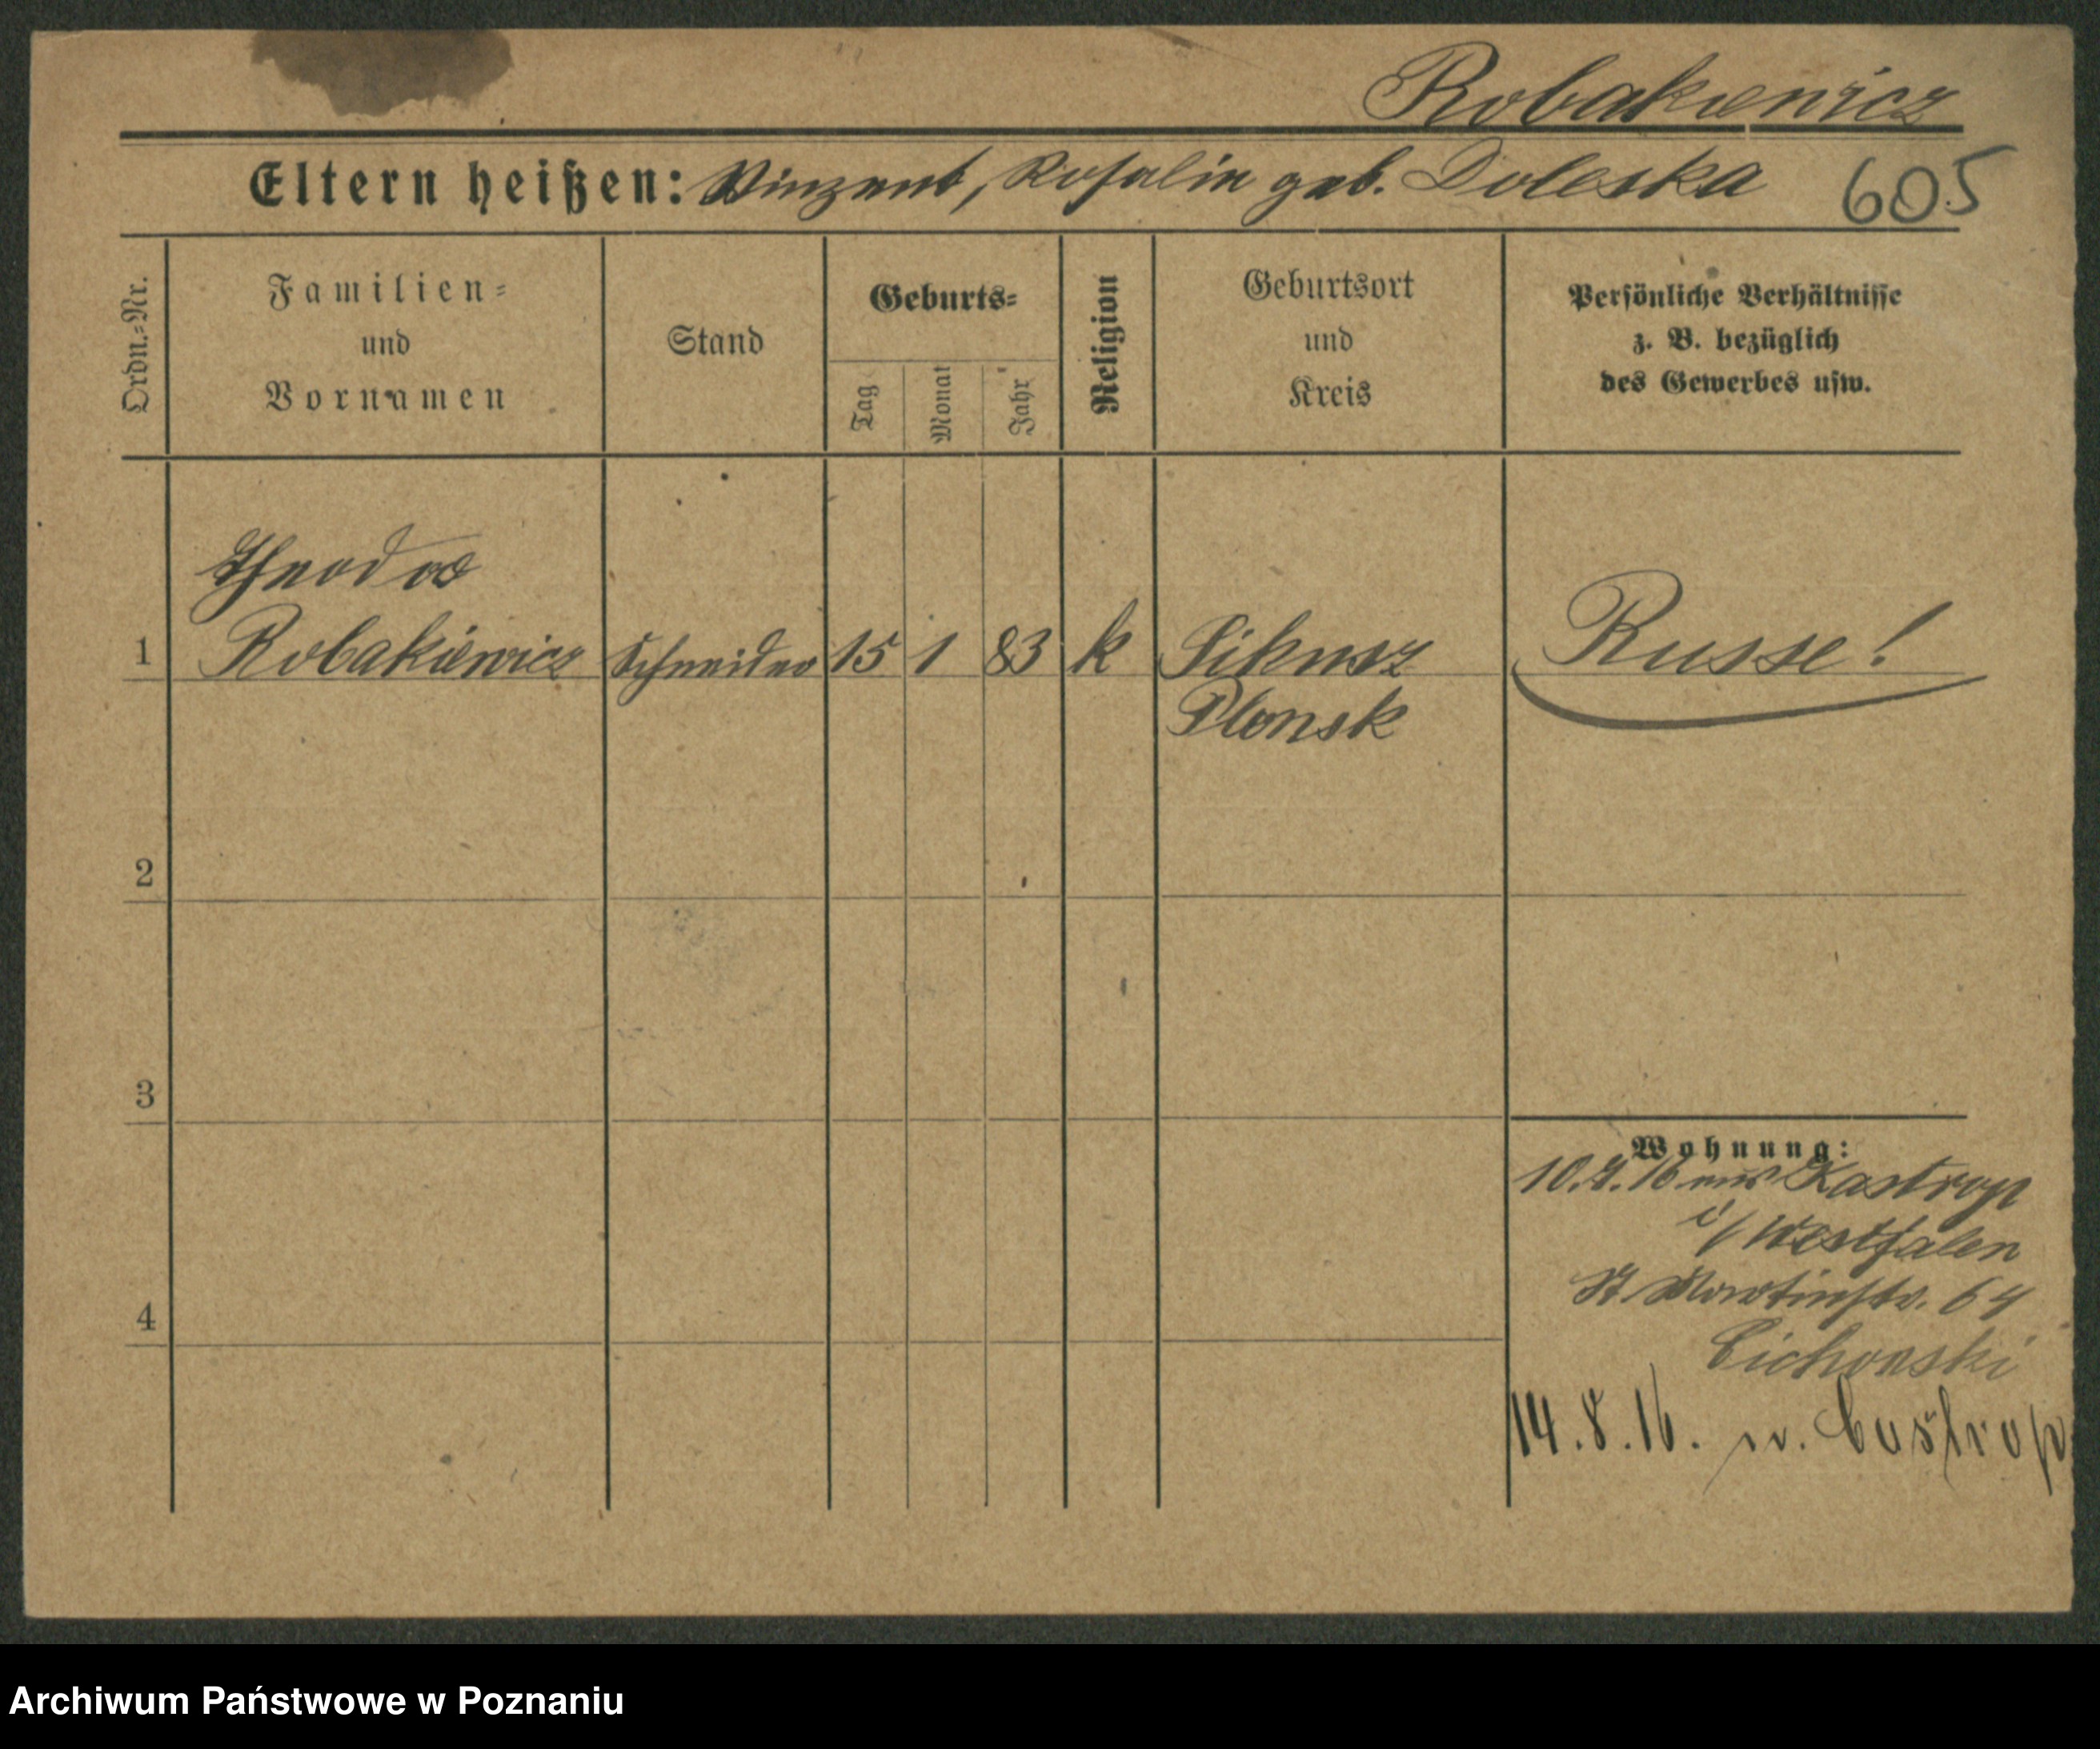 Robakiewicz
Eltern heißen: Vinzent, Rosalie geb. Doleska 605
Ordn.=Nr.
Familien=
und
Vornamen
Stand
Geburts=
Tag
Monat
Jahr
Religion
Geburtsort
und
Kreis
Persönliche Verhältnisse
z. B. bezüglich
des Gewerbes usw.
Theodor
1 Robakiewicz Schneider 15 1 83 k Russe!
Plonsk
2
3
4
Wohnung:
aus Kastrop
i/Westfalen
St Martinstr. 64
Cichonski
14.8.16. n. Castrop
Archiwum Państwowe w Poznaniu